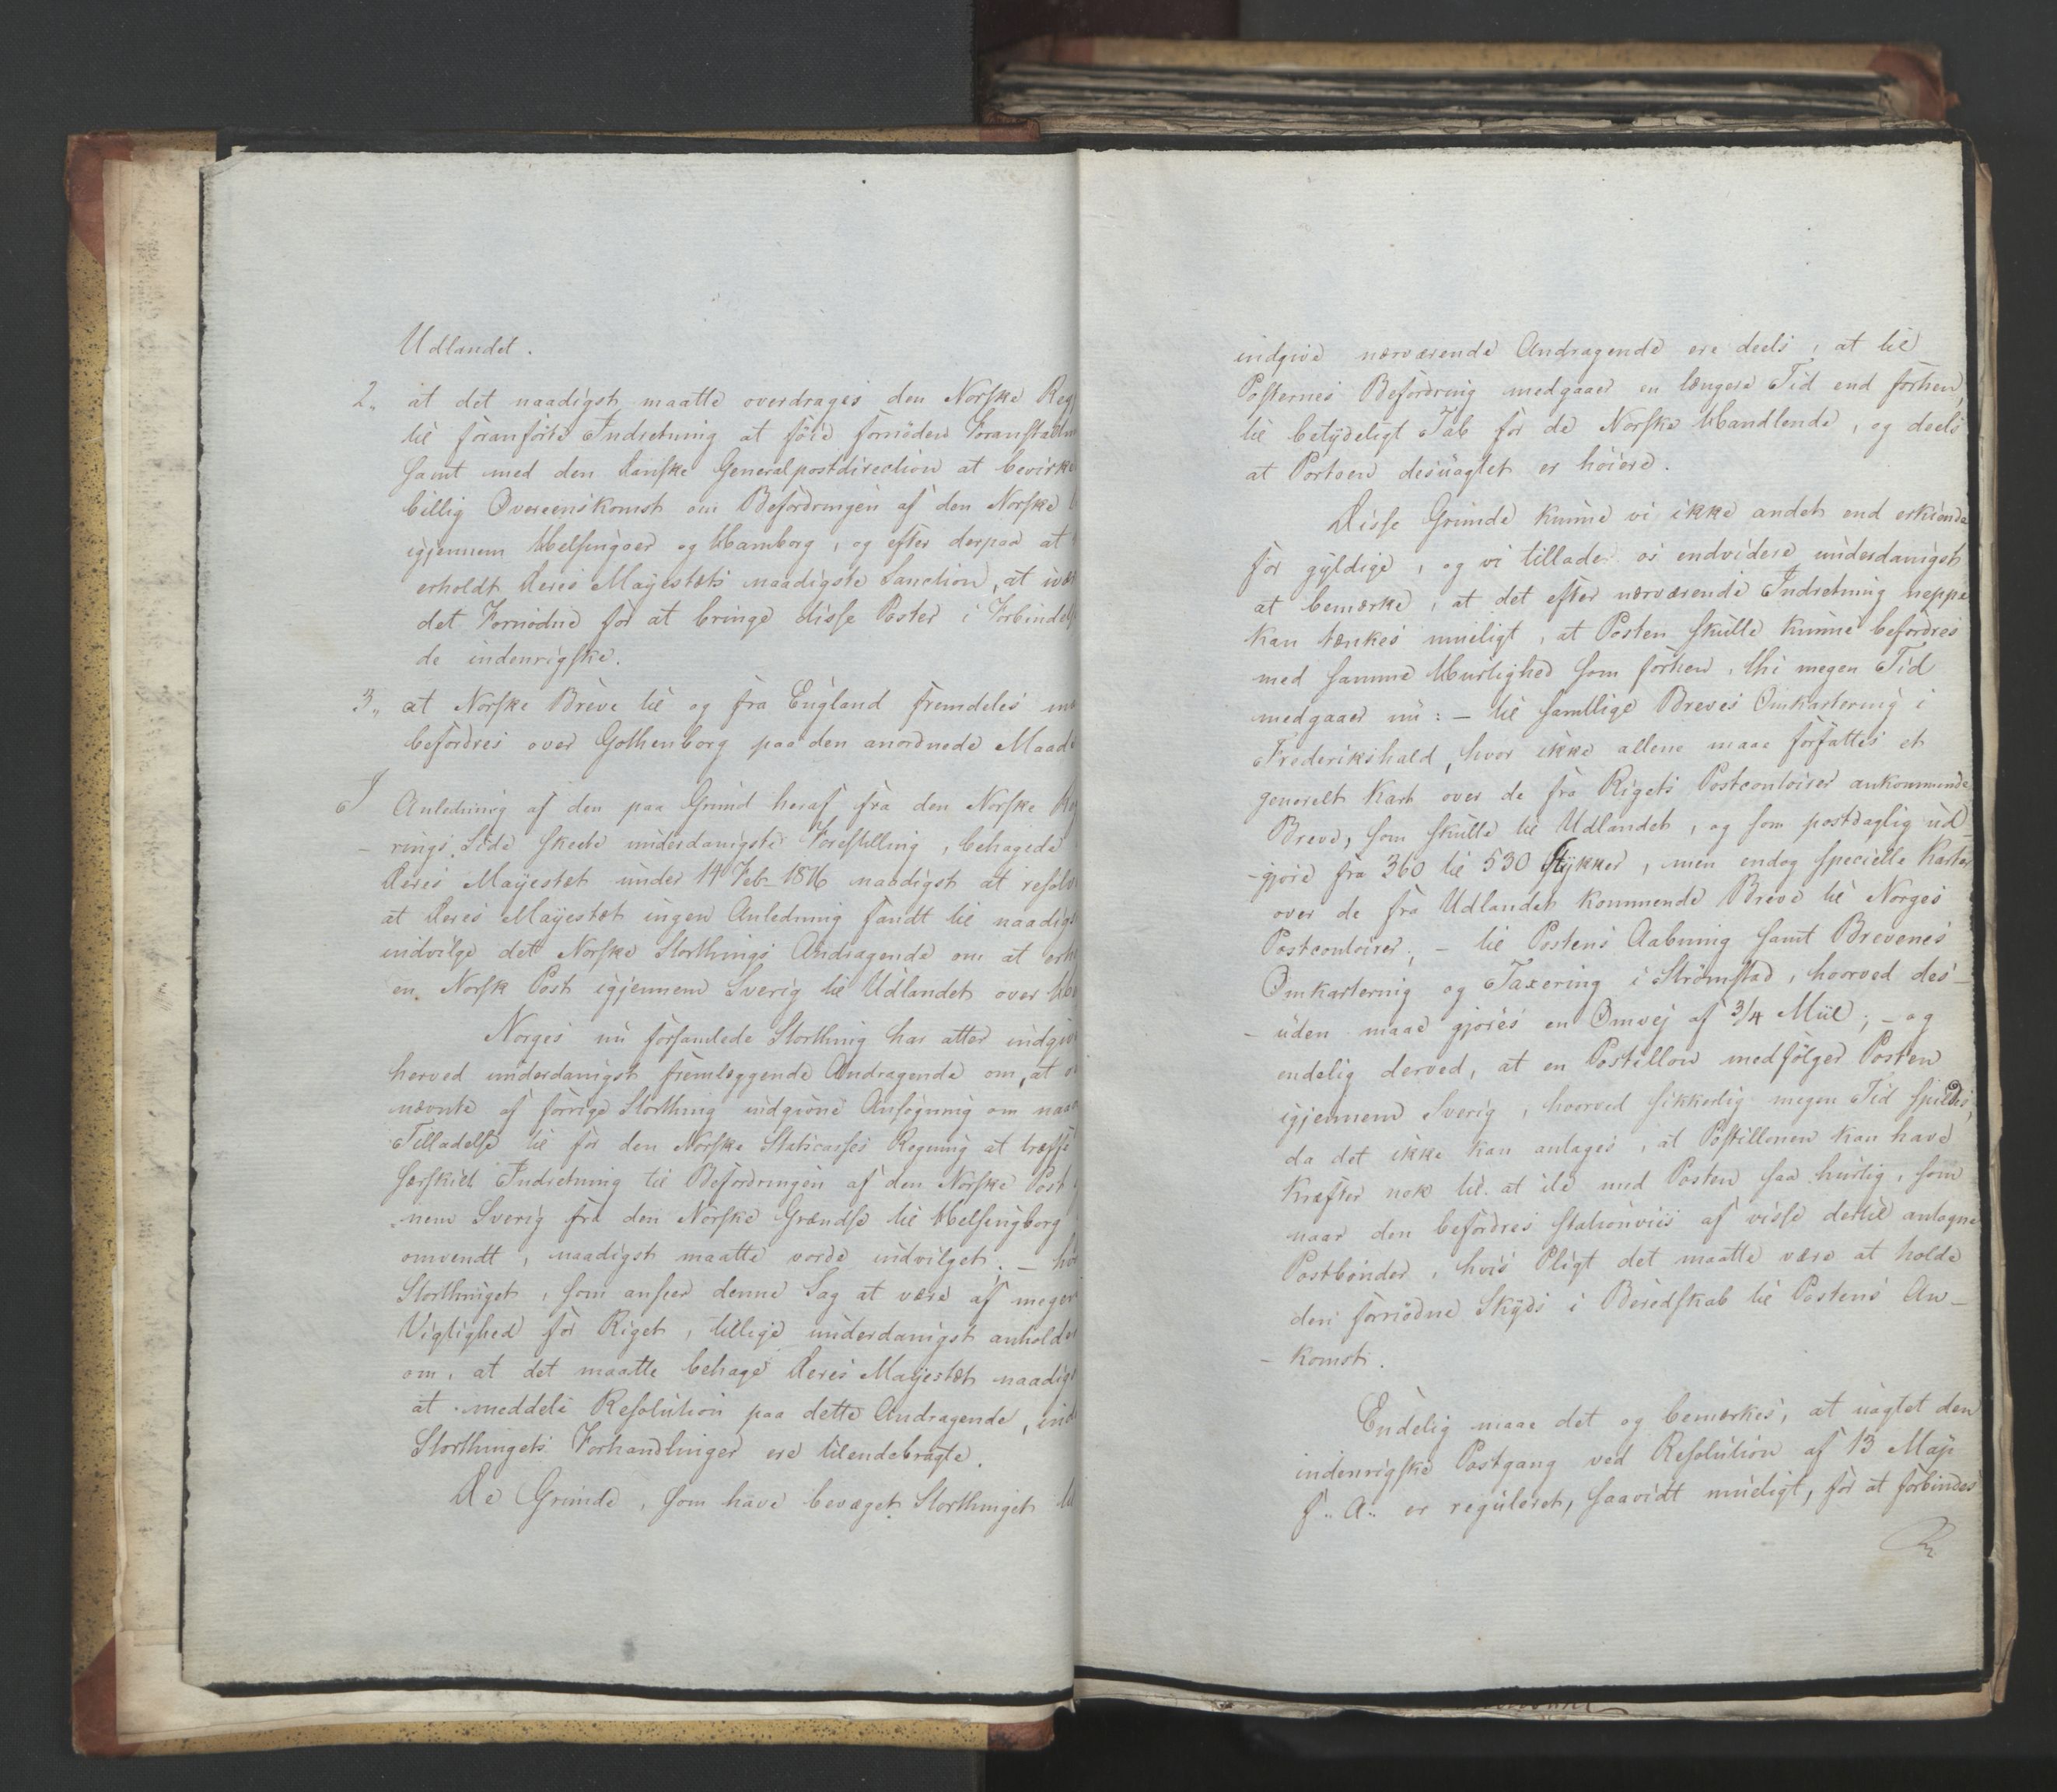 Udlandet.
2„ at det naadigst maatte overdrages den Norske Reg
til foranførte Indretning at føie fornøden Foranstaltn
samt med den danske Generalpostdirection at bevirke
billig Overeenskomst om Befordringen af den Norske
igjennem Helsingøer og Hamborg, og efter derpaa at
erholdt Deres Mayestæts naadigste Sanction, at ivær
det Fornødne for at bringe disse Poster i Forbindels
de indenrigske.
3„ at Norske Breve til og fra England fremdeles m
befordres over Gothenborg paa den anordnede Maade
I Anledning af den paa Grund heraf fra den Norske Reg
- rings Side skeete underdanigste Forestilling, behagede
Deres Mayestæt under 14 Feb. 1816 naadigst at resolv
at Deres Mayestæt ingen Anledning fandt til naadigs
indvilge det Norske Storthings Andragende om at erh
en Norsk Post igjennem Sverig til Udlandet over
Norges nu forsamlede Storthing har atter indgiv
herved underdanigst fremlæggende Andragende om, at
nævnte af forrige Storthing indgivne Ansøgning om naa
Tilladelse til for den Norske Statscasses Regning at træffe
særskilt Indretning til Befordringen af den Norske Post
nem Sverig fra den Norske Grændse til Helsingborg
omvendt, naadigst maatte vorde indvilget; - hvo
Storthinget, som anseer denne Sag at være af megen
Vigtighed for Riget, tillige underdanigst anholder
om, at det maatte behage Deres Mayestæt naadigs
at meddele Resolution paa dette Andragende, ind
Storthingets Forhandlinger ere tilendebragte.
De Grunde, som have bevæget Storthinget til
indgive nærværende Andragende ere deels, at til
Posternes Befordring medgaaer en længere Tid end forhen,
til betydeligt Tab for de Norske Handlende, og deels
at Portoen desuagtet er høiere.
Disse Grunde kunne vi ikke andet end erkiende
for gyldige, og vi tillade os endvidere underdanigst
at bemærke, at det efter nærværende Indretning neppe
kan tænkes mueligt, at Posten skulle kunne befordres
med samme Hurtighed som forhen, thi megen Tid
medgaaer nu: - til samtlige Breves Omkartering i
Frederikshald, hvor ikke allene maae forfattes et
generelt Kart over de fra Rigets Postcontoirer ankommende
Breve, som skulle til Udlandet, og som postdaglig ud-
-gjøre fra 360 til 530 Stykker, men endog specielle Karter
over de fra Udlandet kommende Breve til Norges
Postcontoirer; - til Postens Aabning samt Brevenes
Omkartering og Taxering i Strømstad, hvorved des-
- uden maae gjøres en Omvej af 3/4 Miil; - og
endelig derved, at en Postillon medfølger Posten
igjennem Sverig, hvorved sikkerlig megen Tid spildes,
da det ikke kan antages, at Postillonen kan have
Kræfter nok til at ile med Posten saa hurtig, som
naar den befordres stationsviis af visse dertil antagne
Postbønder, hvis Pligt det maatte være at holde
den fornødne Skyds i Beredskab til Postens An-
- komst.
Endelig maae det og bemærkes, at uagtet den
indenrigske Postgang ved Resolution af 13 May
f„ A„ er reguleret, saavidt mueligt, for at forbindes